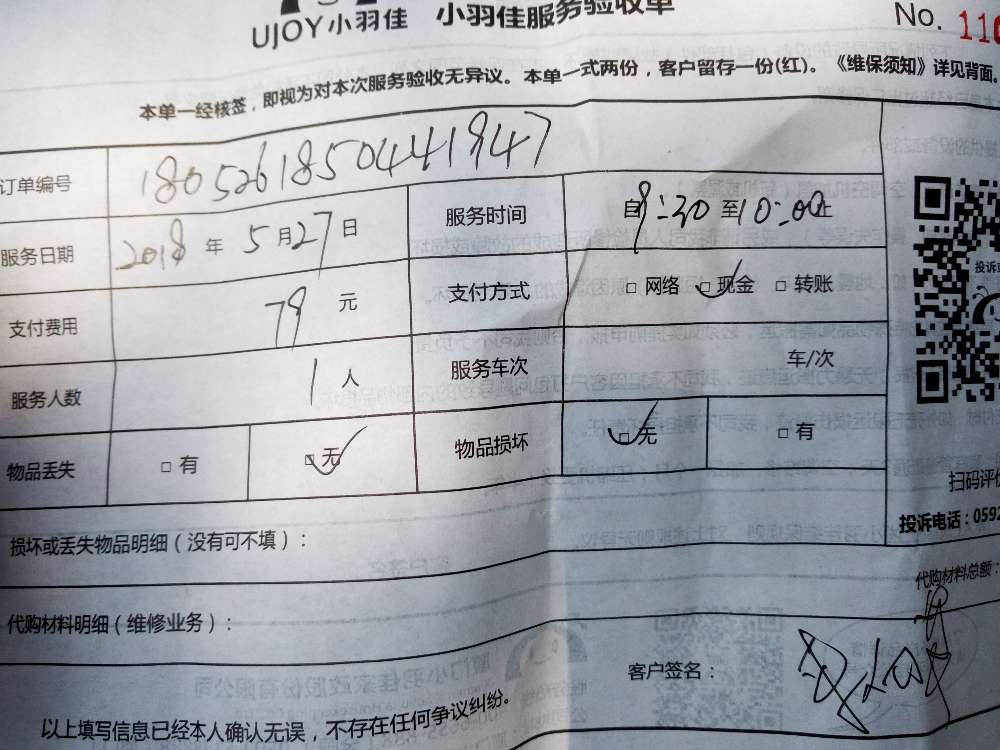 UJOY小羽佳 小羽佳服务验收单
No. 110
本单一经核签，即视为对本次服务验收无异议。本单一式两份，客户留存一份(红)。《维保须知》详见背面。
订单编号 18052618504441847
服务日期 2018 年 5 月 27 日 服务时间 自 9:30 至 10:00 止
支付费用 79 元 支付方式 □ 网络 □ 现金 □ 转账
服务人数 1 人 服务车次 车/次
物品丢失 □ 有 □ 无 物品损坏 □ 无 □ 有
扫码评价
投诉电话：0592
损坏或丢失物品明细（没有可不填）：
代购材料明细（维修业务）： 代购材料总额：
客户签名：
以上填写信息已经本人确认无误，不存在任何争议纠纷。